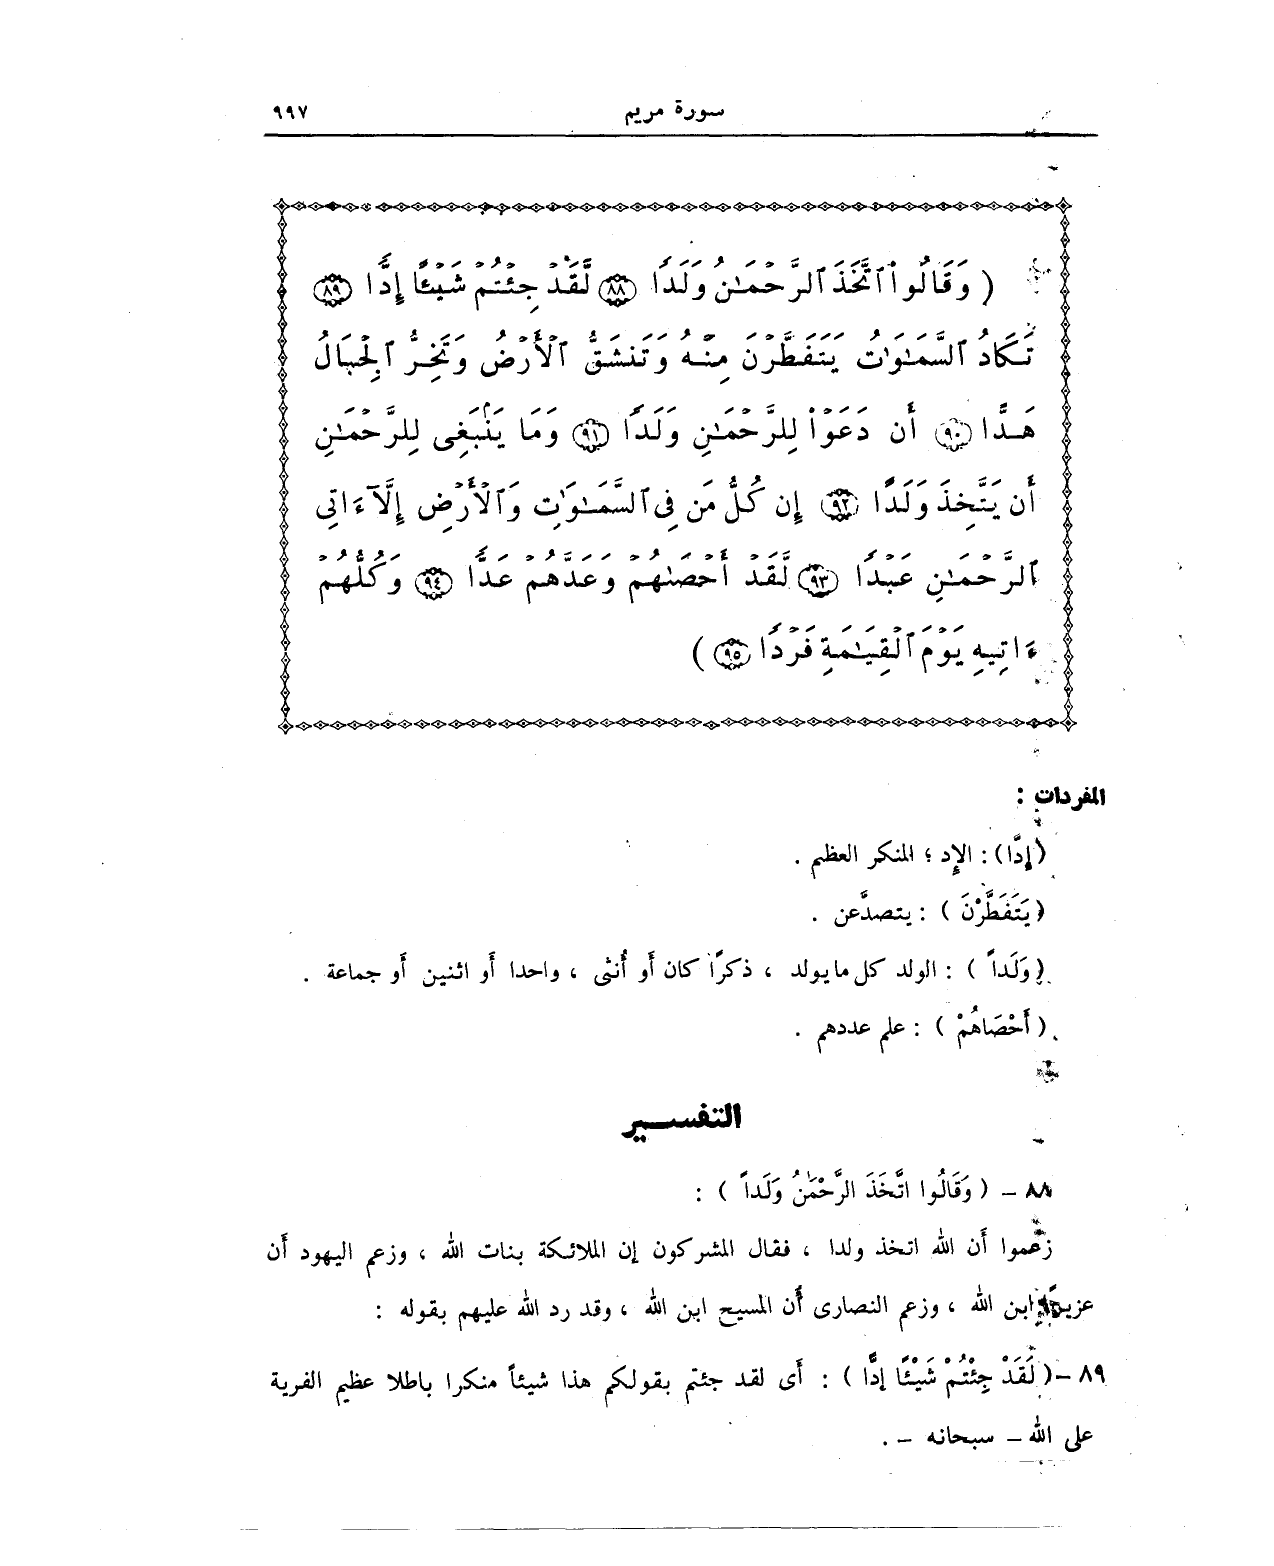 سورة مريم
٩٩٧
( وَقَالُوا۟ ٱتَّخَذَ ٱلرَّحْمَـٰنُ وَلَدًا ٨٨ لَّقَدْ جِئْتُمْ شَيْـًٔا إِدًّا ٨٩
تَكَادُ ٱلسَّمَـٰوَٰتُ يَتَفَطَّرْنَ مِنْهُ وَتَنشَقُّ ٱلْأَرْضُ وَتَخِرُّ ٱلْجِبَالُ
هَدًّا ٩٠ أَن دَعَوْا۟ لِلرَّحْمَـٰنِ وَلَدًا ٩١ وَمَا يَنۢبَغِى لِلرَّحْمَـٰنِ
أَن يَتَّخِذَ وَلَدًا ٩٢ إِن كُلُّ مَن فِى ٱلسَّمَـٰوَٰتِ وَٱلْأَرْضِ إِلَّآ ءَاتِى
ٱلرَّحْمَـٰنِ عَبْدًا ٩٣ لَّقَدْ أَحْصَىٰهُمْ وَعَدَّهُمْ عَدًّا ٩٤ وَكُلُّهُمْ
ءَاتِيهِ يَوْمَ ٱلْقِيَـٰمَةِ فَرْدًا ٩٥ )
المفردات :
(إِدًّا) : الإِد ؛ المنكر العظيم .
(يَتَفَطَّرْنَ ) : يتصدَّعن .
(وَلَداً ) : الولد كل ما يولد ، ذكرًا كان أو أُنثى ، واحدا أو اثنين أو جماعة .
( أَحْصَاهُمْ ) : علم عددهم .
التفسـير
٨٨ – ( وَقَالُوا اتَّخَذَ الرَّحْمَٰنُ وَلَداً ) :
زعموا أن الله اتخذ ولدا ، فقال المشركون إن الملائكة بنات الله ، وزعم اليهود أن
عزيرًا ابن الله ، وزعم النصارى أن المسيح ابن الله ، وقد رد الله عليهم بقوله :
٨٩ –( لَقَدْ جِئْتُمْ شَيْئًا إِدًّا ) : أى لقد جئتم بقولكم هذا شيئاً منكرا باطلا عظيم الفرية
على الله – سبحانه – .